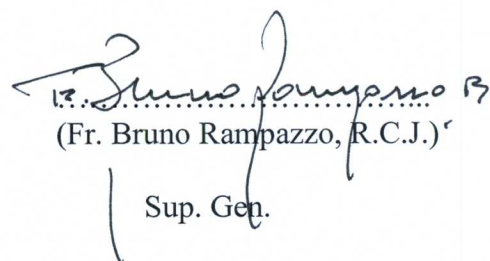 P. Bruno Rampazzo
(Fr. Bruno Rampazzo, R.C.J.)
Sup. Gen.